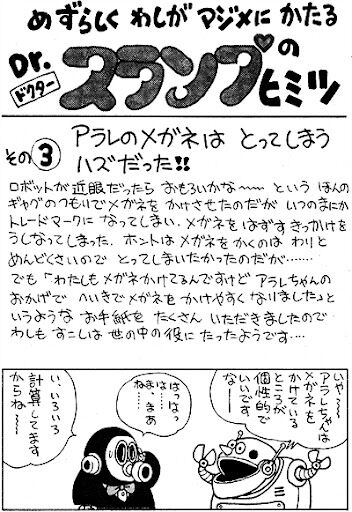 めずらしく わしが マジメに かたる
Dr.
ドクター
スランプの
ヒミツ
その③
アラレのメガネは とってしまう
ハズだった!!
ロボットが近眼だったら おもろいかな〜〜 という ほんの
ギャグのつもりでメガネを かけさせたのだが いつのまにか
トレードマークに なってしまい、メガネを はずす きっかけを
うしなってしまった。ホントは メガネを かくのは わりと
めんどくさいので とってしまいたかったのだが……
でも「わたしも メガネかけてるんですけど アラレちゃんの
おかげで へいきでメガネを かけやすく なりました」と
いうような お手紙を たくさん いただきましたので
わしも すこしは 世の中の役に たったようです…
いや〜
アラレちゃんは
メガネを
かけている
ところが
個性的で
いいです
なー
はっはっは…
ま、まあ
い、いろいろ
計算してます
からね〜